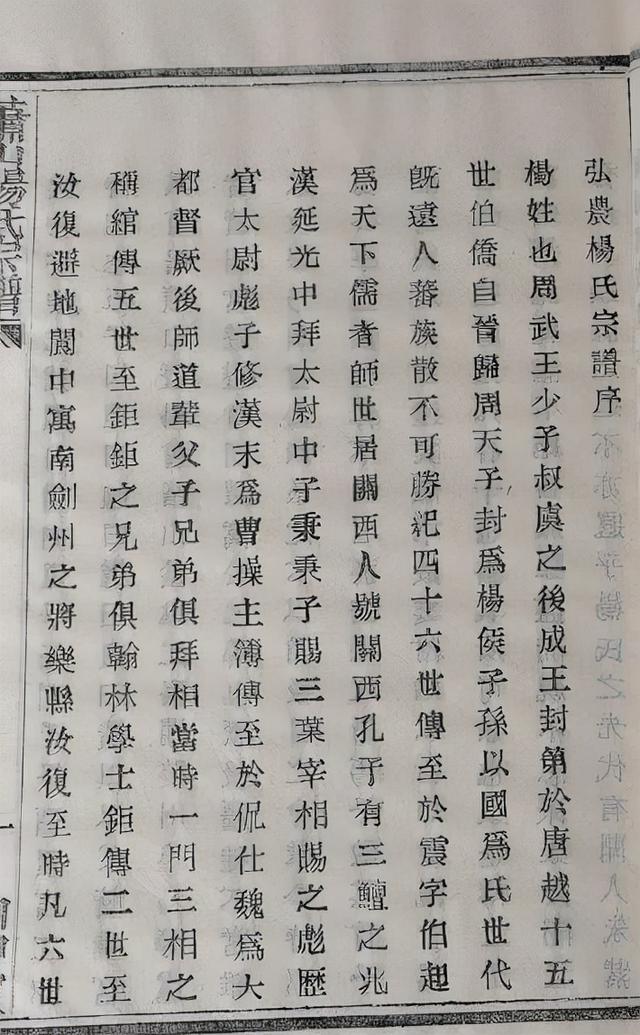 弘農楊氏宗譜序
楊姓也周武王少子叔虞之後成王封第於唐越十五
世伯僑自晉歸周天子封爲楊侯子孫以國爲氏世代
旣遠人蕃族散不可勝紀四十六世傳至於震字伯起
爲天下儒者師世居關西人號關西孔子有三鱣之兆
漢延光中拜太尉中子秉秉子賜三葉宰相賜之彪歷
官太尉彪子修漢末爲曹操主簿傳至於侃仕魏爲大
都督厥後師道輩父子兄弟俱拜相當時一門三相之
稱綰傳五世至鉅鉅之兄弟俱翰林學士鉅傳二世至
汝復避地閩中寓南劍州之將樂縣汝復至時凡六世
蕭山楊氏宗譜